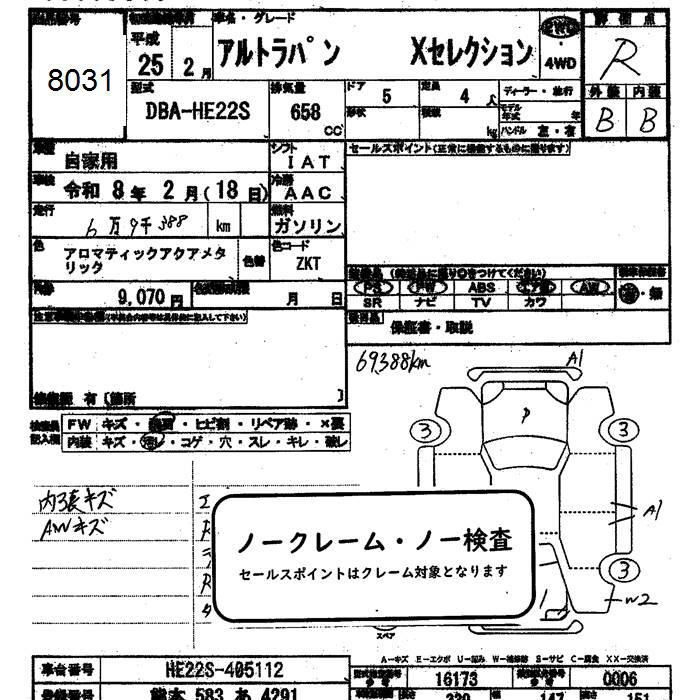 8031
平成
25 2月
車名・グレード
アルトラパン Xセレクション
2WD
・
4WD
評価点
R
外装 内装
B B
型式
DBA-HE22S
排気量
658
CC
ドア
5
定員
4
形状
ディーラー・並行
ハンドル 左・右
車歴
自家用
シフト
IAT
車検
令和 8年 2月(18日)
冷房
AAC
走行
6万9千388 km
燃料
ガソリン
色
アロマティックアクアメタリック
色替
色コード
ZKT
9,070円
月 日
セールスポイント(正常に機能するものに限ります)
PS PW ABS エア革 AW
SR ナビ TV カワ
有・無
後日品
保証書・取説
修復歴 有〔箇所 〕
69388km
検査員
記入欄
FW キズ・飛石・ヒビ割・リペア跡・×要
内装 キズ・汚レ・コゲ・穴・スレ・キレ・破レ
内張キズ
AWキズ
ノークレーム・ノー検査
セールスポイントはクレーム対象となります
A1
P
3
3
A1
3
W2
スペア
A-キズ E-エクボ U-凹み W-補修跡 S-サビ C-腐食 XX-交換済
車台番号
HE22S-405112
16173
0006
熊本 583 あ 4291
339
147
151